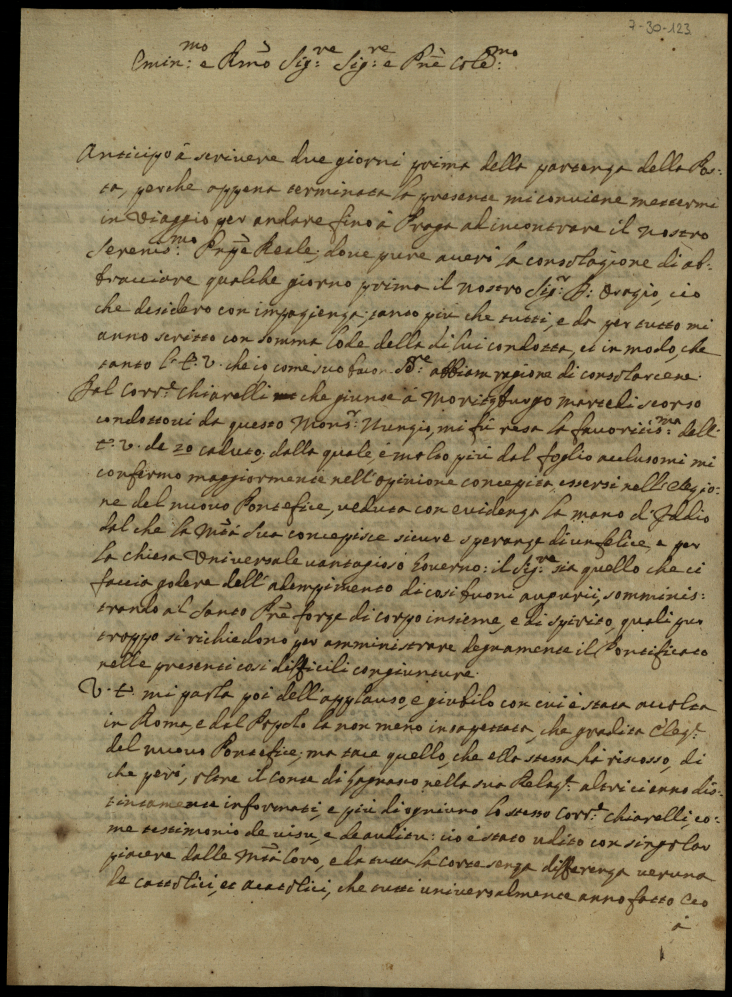 7-30-123
Emin:mo e Rmo Sig:re Sig:re e Pne Colmo:
Anticipo à scrivere due giorni prima della partenza della Pos:
ta, perche appena terminata la presente mi conviene mettermi
in Viaggio per andare fino à Praga ad incontrare il nostro
Sereniss:mo Prpe Reale, dove pure averò la consolazione di ab:
bracciare qualche giorno prima il nostro Sig:r P: Biagio, ciò
che desidero con impazienza, tanto più che tutti, e da per tutto mi
anno scritto con somma lode della di lui condotta, et in modo, che
tanto l'E: V. che io come suo buon abbiam ragione di consolarcene.
Dal Corr:e Chiarelli che giunse à Moritzburgo martedi scorso
condottovi da questo Mons:r Nunzio, mi fù resa la favoritis:ma dell'
E: V. de 20 caduto, dalla quale, e molto più dal foglio acclusomi mi
confermo maggiormente nell'opinione concepita, essersi nell'Elezio:
ne del nuovo Pontefice, veduta con evidenza la mano d'Iddio
dal che la Mtà Sua concepisce sicure speranze di un felice, e per
la chiesa Universale vantagioso Governo: il Sig:re sia quello che ci
faccia godere dell'adempimento di così buoni augurii, somminis:
trando al Santo Pre forze di corpo insieme, e di spirito, quali pur
troppo si richiedono per amministrare degnamente il Pontificato
nelle presenti così difficili congiunture.
V. E: mi parla poi dell'applauso, e giubilo con cui è stata accolta
in Roma, e dal Popolo la non meno inaspettata, che gradita Elez:e
del nuovo Pontefice; ma tace quello, che ella stessa hà riscosso, di
che però, oltre il Conte di Lagnasco nella sua Relaz:e altri ci anno dis:
tintamente informati, e più di ogniuno lo stesso Corr:e Chiarelli, co:
me testimonio de visu, e de auditu: ciò è stato udito con singolar
piacere dalle Mtà Loro, e da tutta la Corte senza differenza veruna
de cattolici, et acatolici, che tutti universalmente anno fatto Eco
à